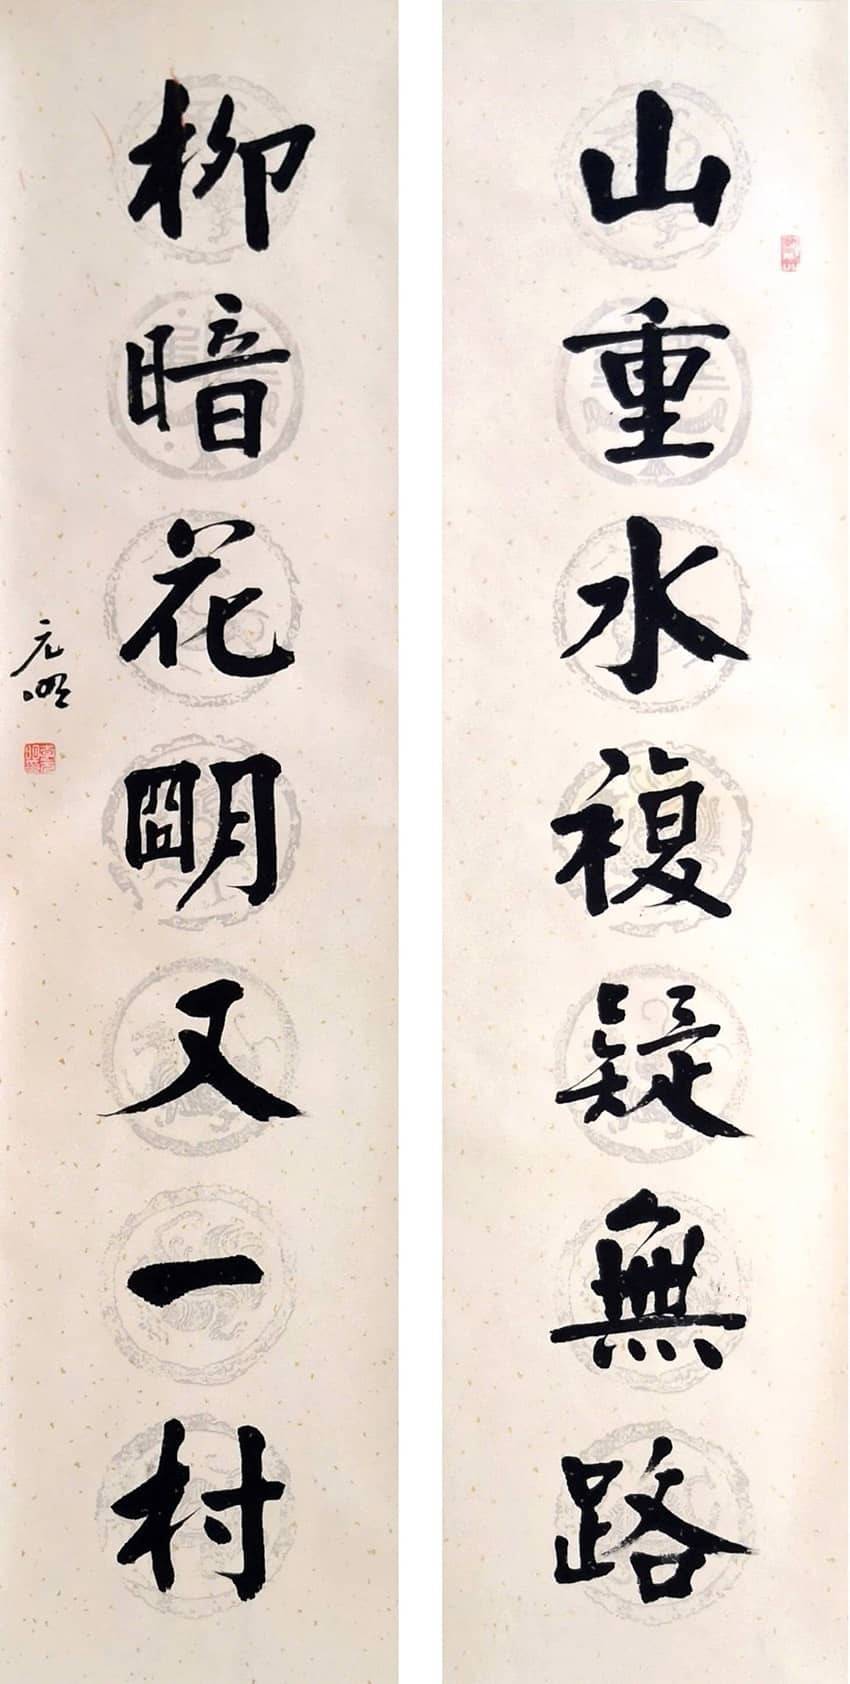 山重水複疑無路
柳暗花朙又一村
元明